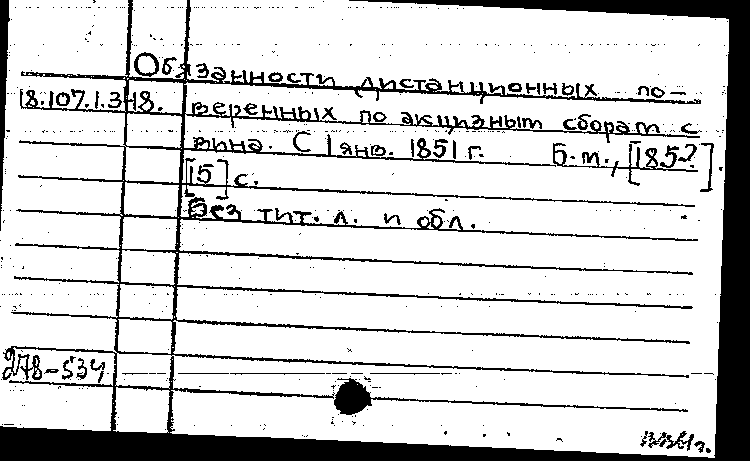 Обязанности дистанционных по-
18.107.1.348. веренных по акцизным сборам с
вина. С 1 янв. 1851 г. Б. м., [185?].
[15] с.
Без тит. л. и обл.
278-534